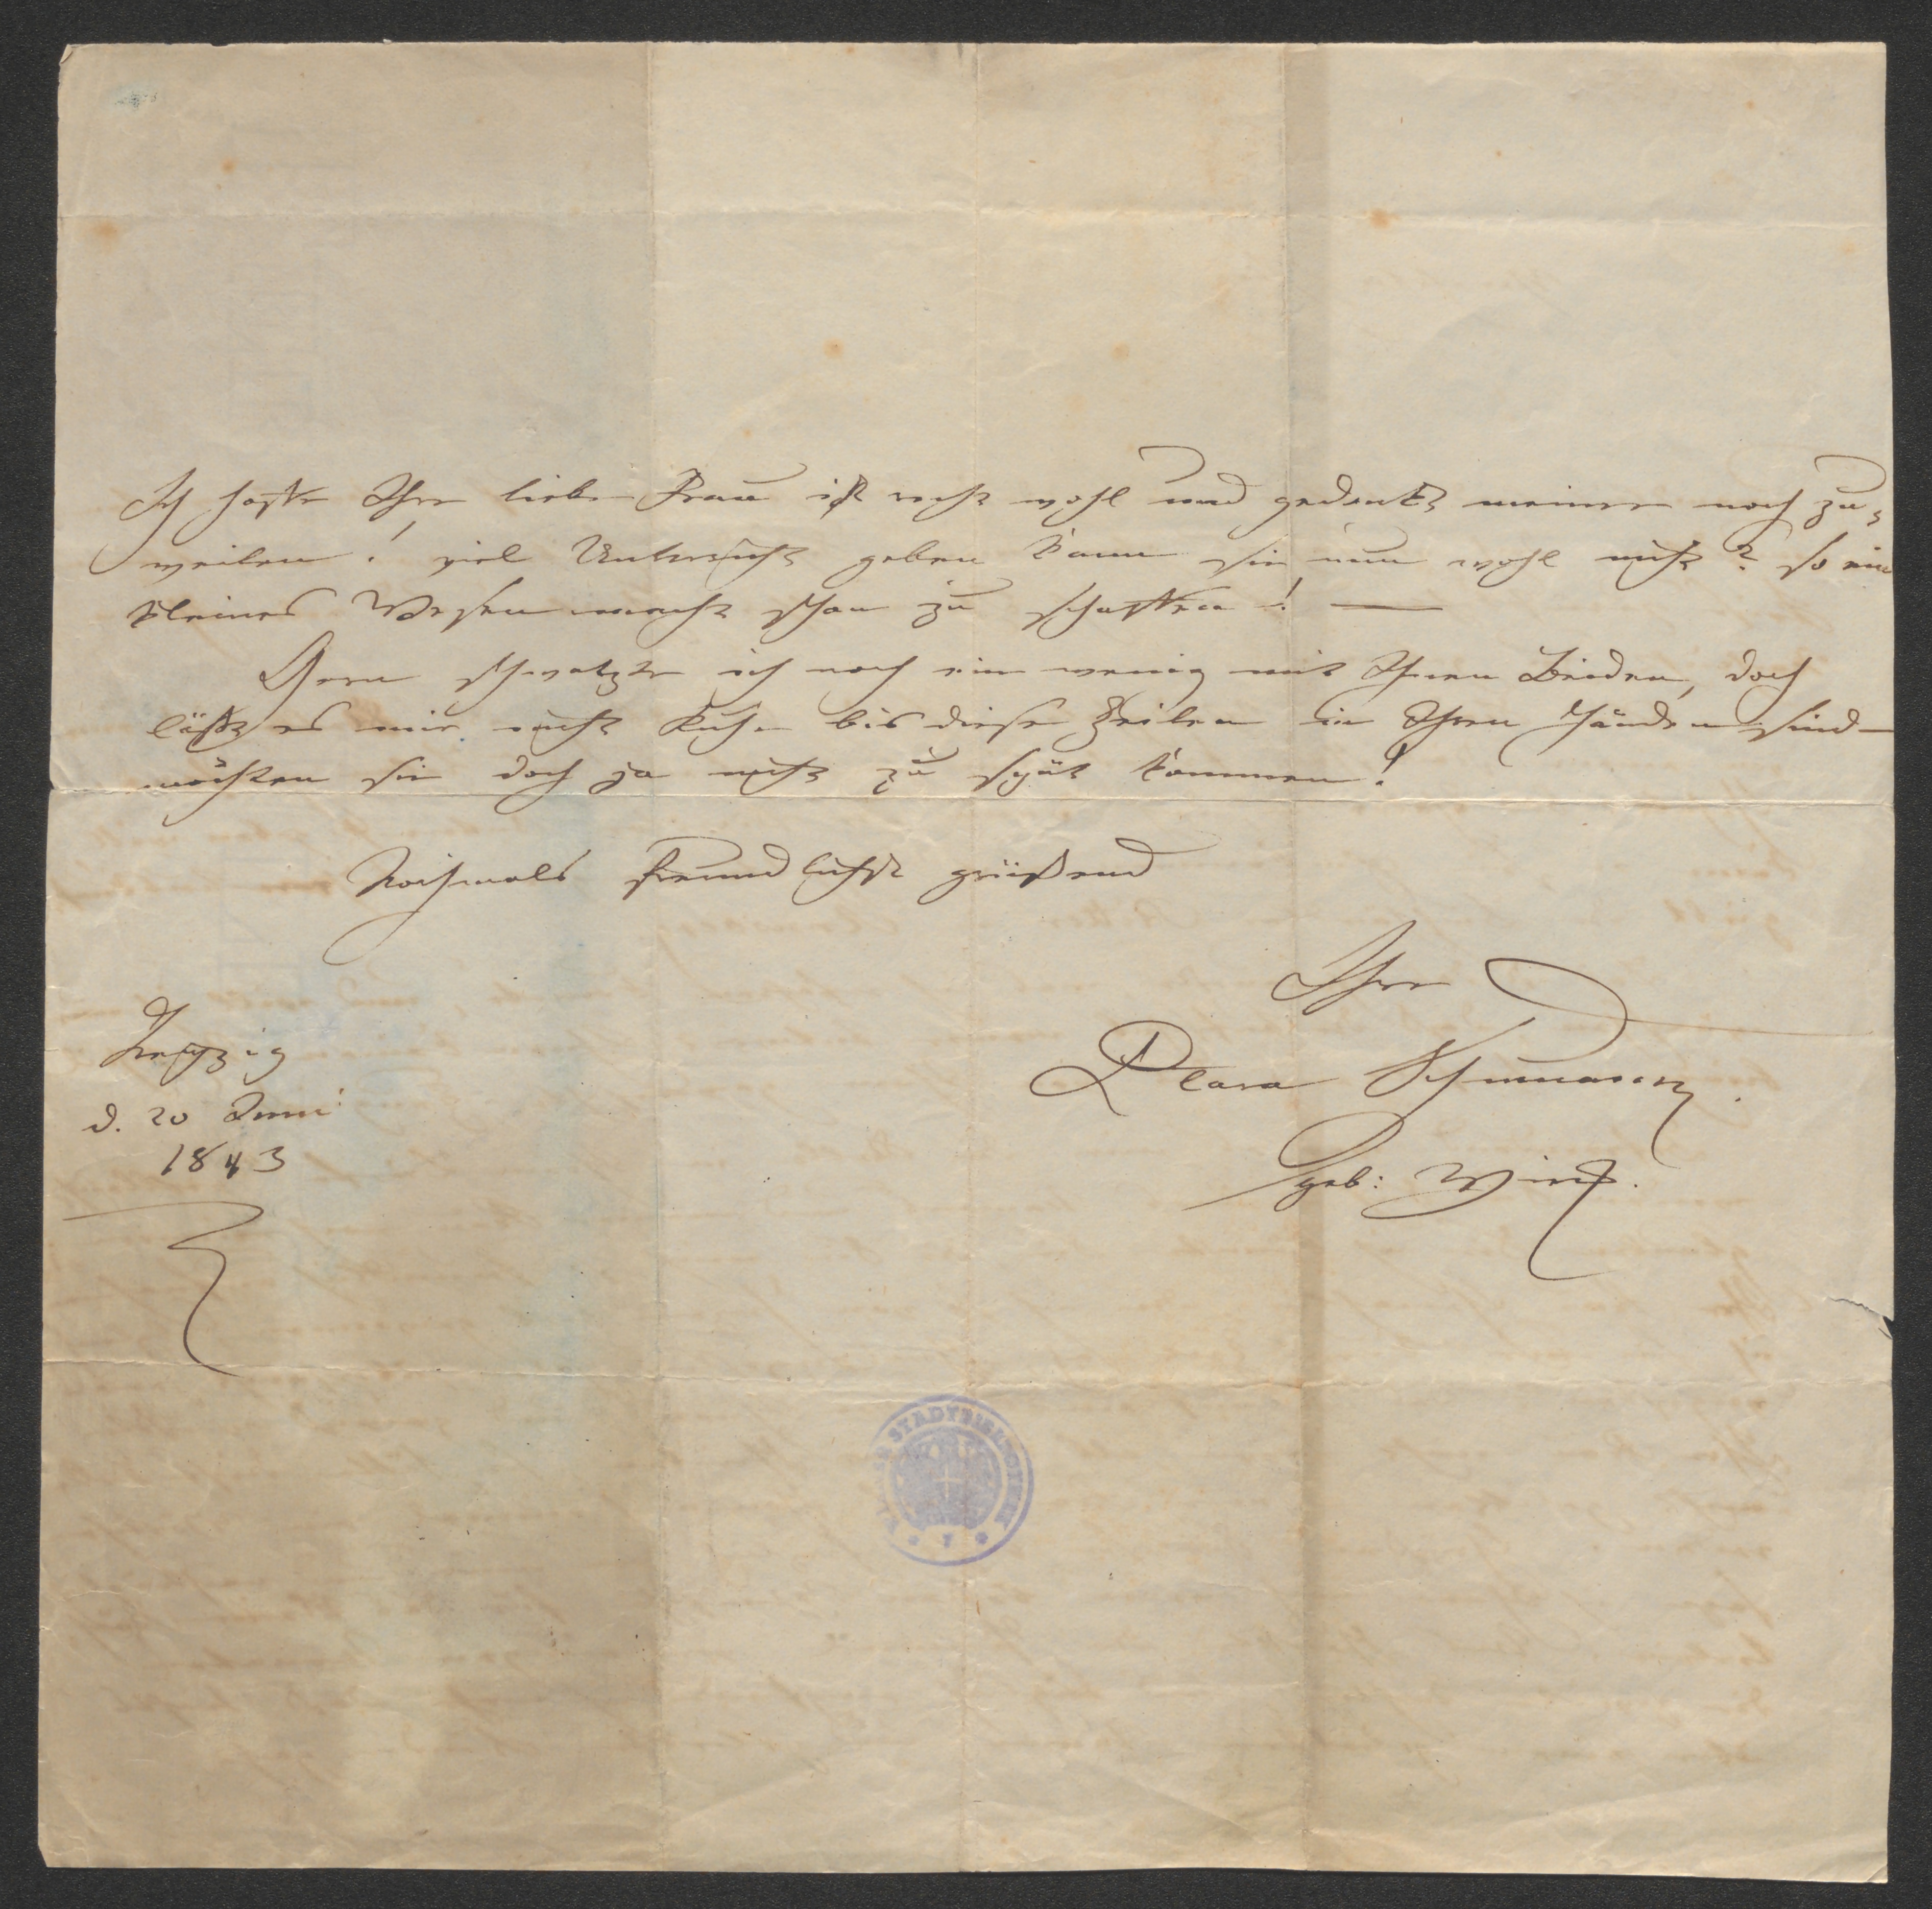 Ich hoffe Ihre liebe Frau ist recht wohl und gedenkt meiner noch zu-
weilen! viel Unterricht geben kann sie nun wohl nicht? so ein
kleines Wesen macht schon zu schaffen! —
Gern schwatzte ich noch ein wenig mit Ihnen Beiden, doch
läßt es mir nicht Ruhe bis diese Zeilen in Ihren Händen sind —
möchten sie doch ja nicht zu spät kommen!
Nochmals freundlichst grüßend
Ihre
Clara Schumann.
geb: Wieck.
Leipzig
d. 20 Juni
1843
STADTBIBLIOTHEK